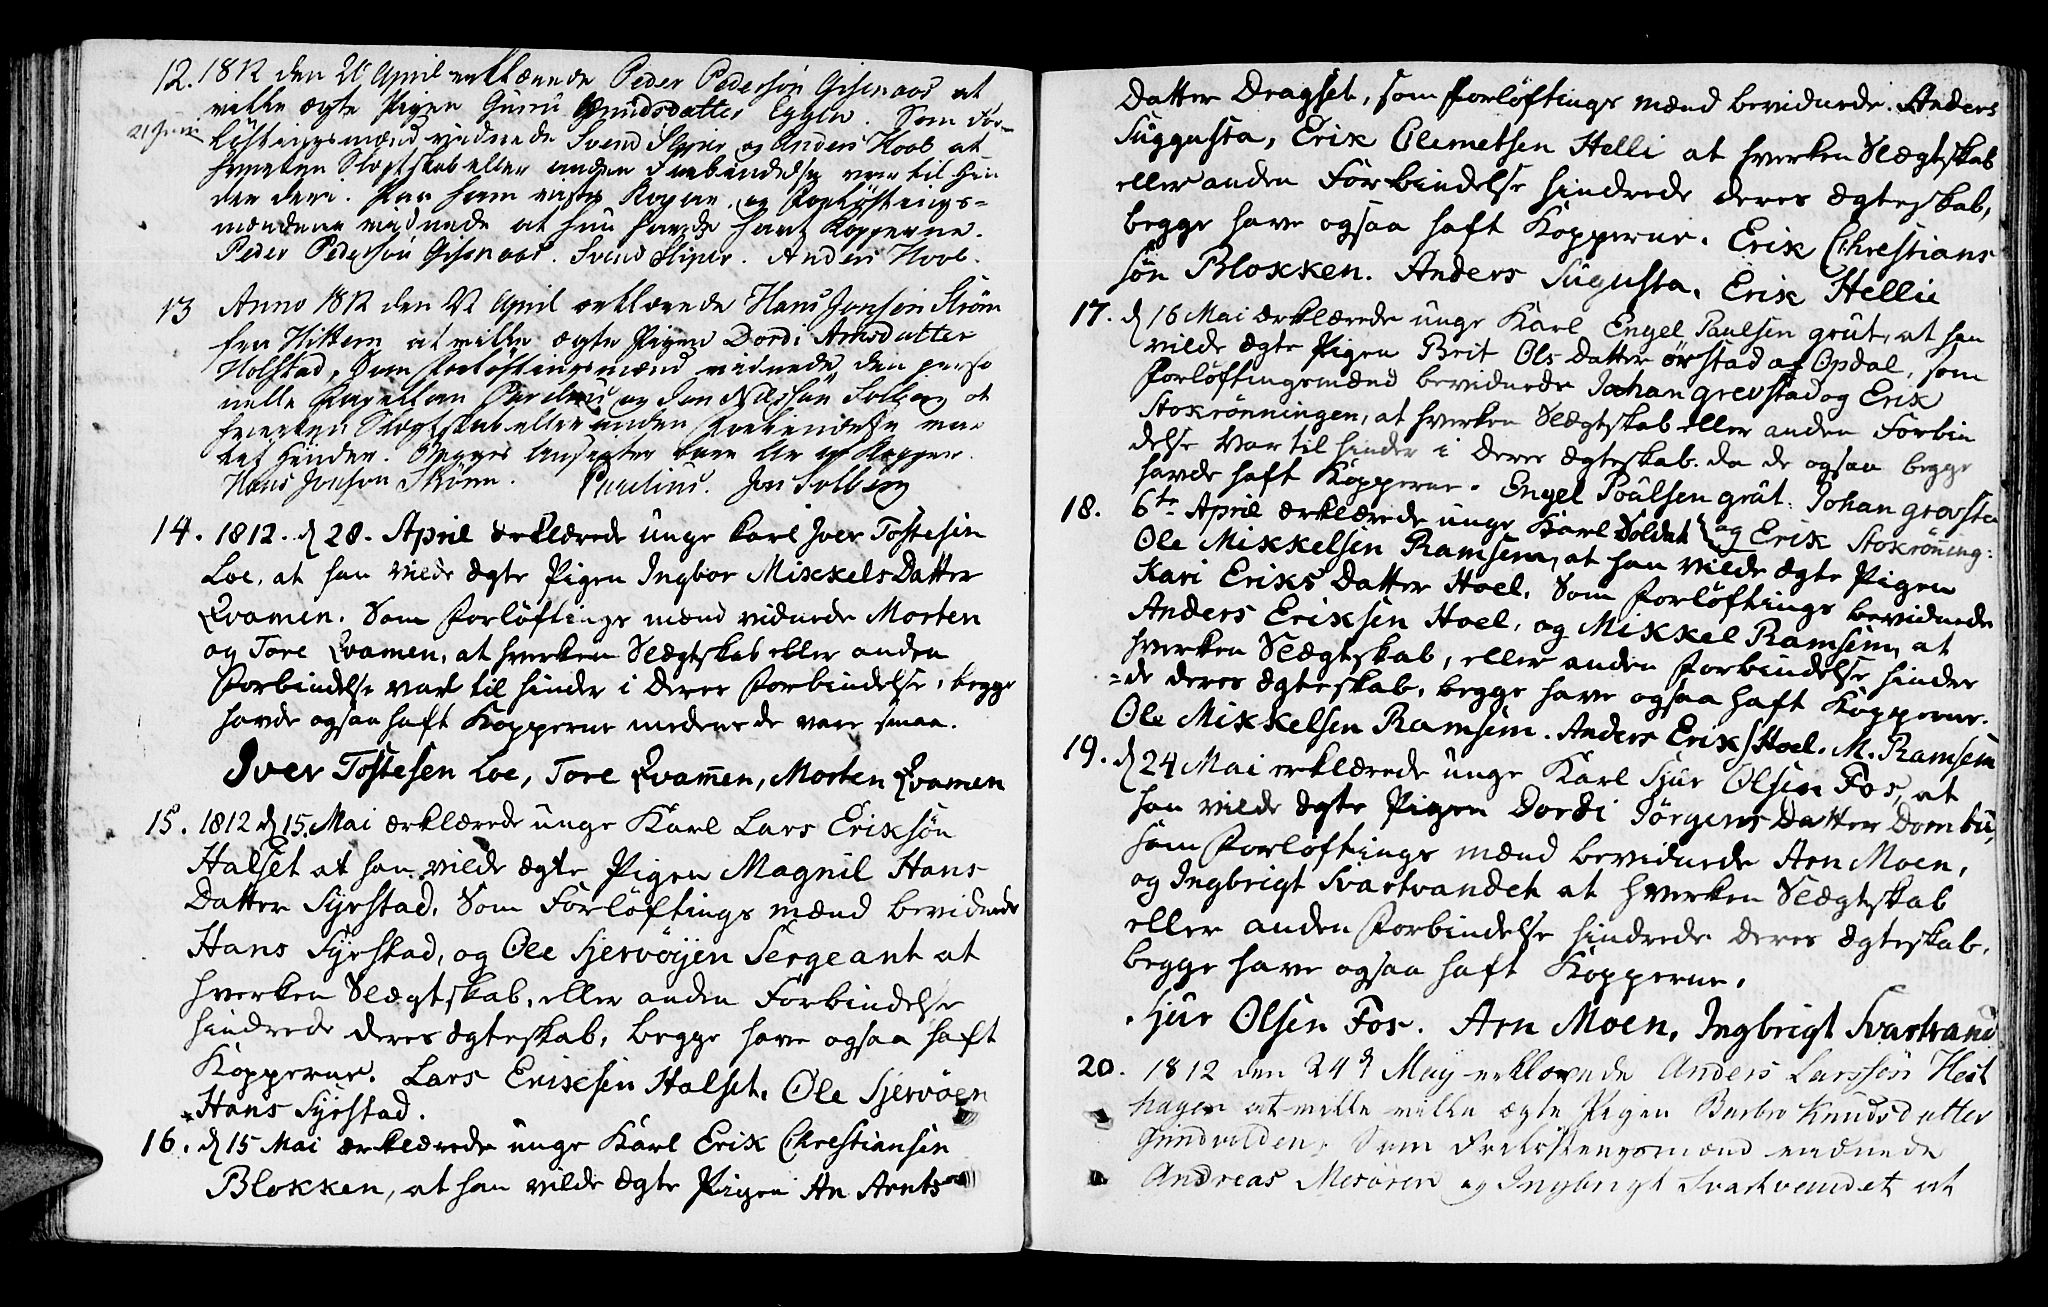 12. 1812 den 20 April erklærede Peder Pedersøn Gisnaas at
ville ægte Pigen Guru Knudsdatter Eggen. Som For-
løftningsmænd vidnede Svend Sliper og Anders Hoel at
hverken Slægtskab eller anden Forbindelse var til Hin
der deri. Han havde Kopper, og Forløftnings-
mændene vidnede at hun havde havt Kopperne.
Peder Pedersøn Gisnaas. Svend Sliper. Anders Hoel.
13 Anno 1812 den 22 April erklærede Hans Jonsøn Strøm
fra Hittern at ville ægte Pigen Dordi Arnsdatter
Holstad, Som Forløftningsmænd vidnede den perso
nelle Capellan Parelius og Jon Nilssøn Solberg at
hverken Slægtskab eller anden Forbindelse var
det Hinder. Begges Ansigter bare Ar af Kopper.
Hans Jonsøn Strøm. Parelius. Jon Solberg
14. 1812. d 28. April erklærede unge Karl Iver Tostesen
Loe, at han vilde ægte Pigen Ingbor Mikkels Datter
Qvamen. Som Forløftings mænd vidnede Morten
og Tore Qvamen, at hverken Slægtskab eller anden
Forbindelse var til hinder i deres Forbindelse, begge
havde ogsaa haft Kopperne medens de vare smaa.
Iver Tostesen Loe, Tore Qvamen, Morten Qvamen
15. 1812 d 15. Mai erklærede unge Karl Lars Eriksøn
Halset at han vilde ægte Pigen Magnil Hans
Datter Syrstad. Som Forløftings mænd bevidnede
Hans Syrstad, og Ole Sjervøyen Sergeant at
hverken Slægtskab, eller anden Forbindelse
hindrede deres Ægteskab, begge have ogsaa haft
Kopperne. Lars Eriksen Halset. Ole Sjervøen
Hans Syrstad.
16. d 15 Mai erklærede unge Karl Erik Chrestiansen
Blokken, at han vilde ægte Pigen An Arnts
Datter Dragset, som Forløftings mænd bevidnede Anders
Suggusta, Erik Clemetsen Helli at hverken Slægtskab
eller anden Forbindelse hindrede deres Ægteskab,
begge have ogsaa haft Kopperne. Erik Chrestians
søn Blokken. Anders Sugusta. Erik Hellie
17. d 16 Mai erklærede unge Karl Engel Paulsen grut, at han
vilde ægte Pigen Brit Ols Datter ørstad af Opdal, som
Forløftingsmænd bevidnede Johan grevstad og Erik
Stokrønningen, at hverken Slægtskab eller anden Forbin
delse var til hinder i deres Ægteskab. da de ogsaa begge
havde haft Kopperne. Engel Poulsen grut. Johan grevsta
og Erik Stokrøning:
18. 6te April erklærede unge Karl Soldat
Ole Mikkelsen Ramsem, at han vilde ægte Pigen
Kari Eriks Datter Hoel. Som Forløftings bevidnede
Anders Eriksen Hoel, og Mikkel Ramsem, at
hverken Slægtskab, eller anden Forbindelse hindre
=de deres Ægteskab, begge have ogsaa haft Kopperne.
Ole Mikkelsen Ramsem. Anders Eriks Hoel. M. Ramsem
19. d 24 Mai erklærede unge Karl Sjur Olsen Fos, at
han vilde ægte Pigen Dordi Jørgens Datter Dombu,
som Forløftings mænd bevidnede Arn Moen,
og Ingbrigt Svartvandet at hverken Slægtskab
eller anden Forbindelse hindrede deres Ægteskab.
begge have ogsaa haft Kopperne.
Sjur Olsen Fos. Arn Moen. Ingbrigt Svartvand
20. 1812 den 24d May erklærede Anders Larssøn Hest
hagen at ville ville ægte Pigen Barbro Knudsdatter
Grindvolden, Som Forløftningsmænd vidnede
Andreas Morøren og Ingbrigt Svartvandet at